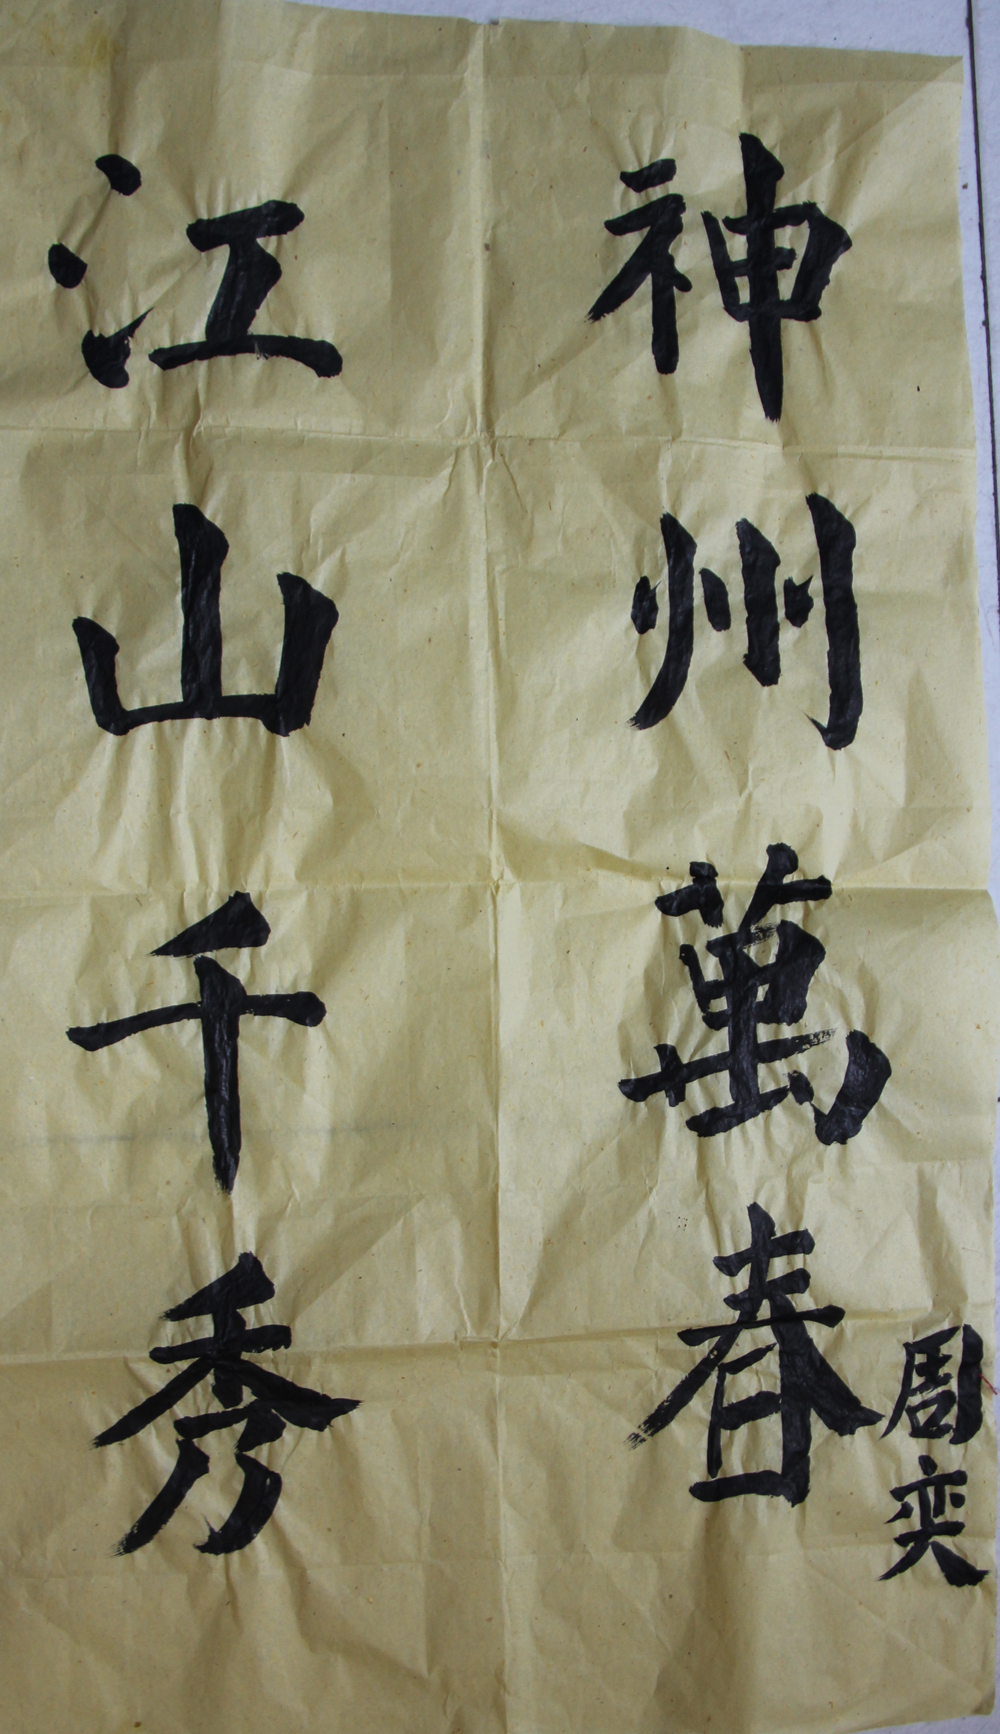 神州萬春
江山千秀
周奕